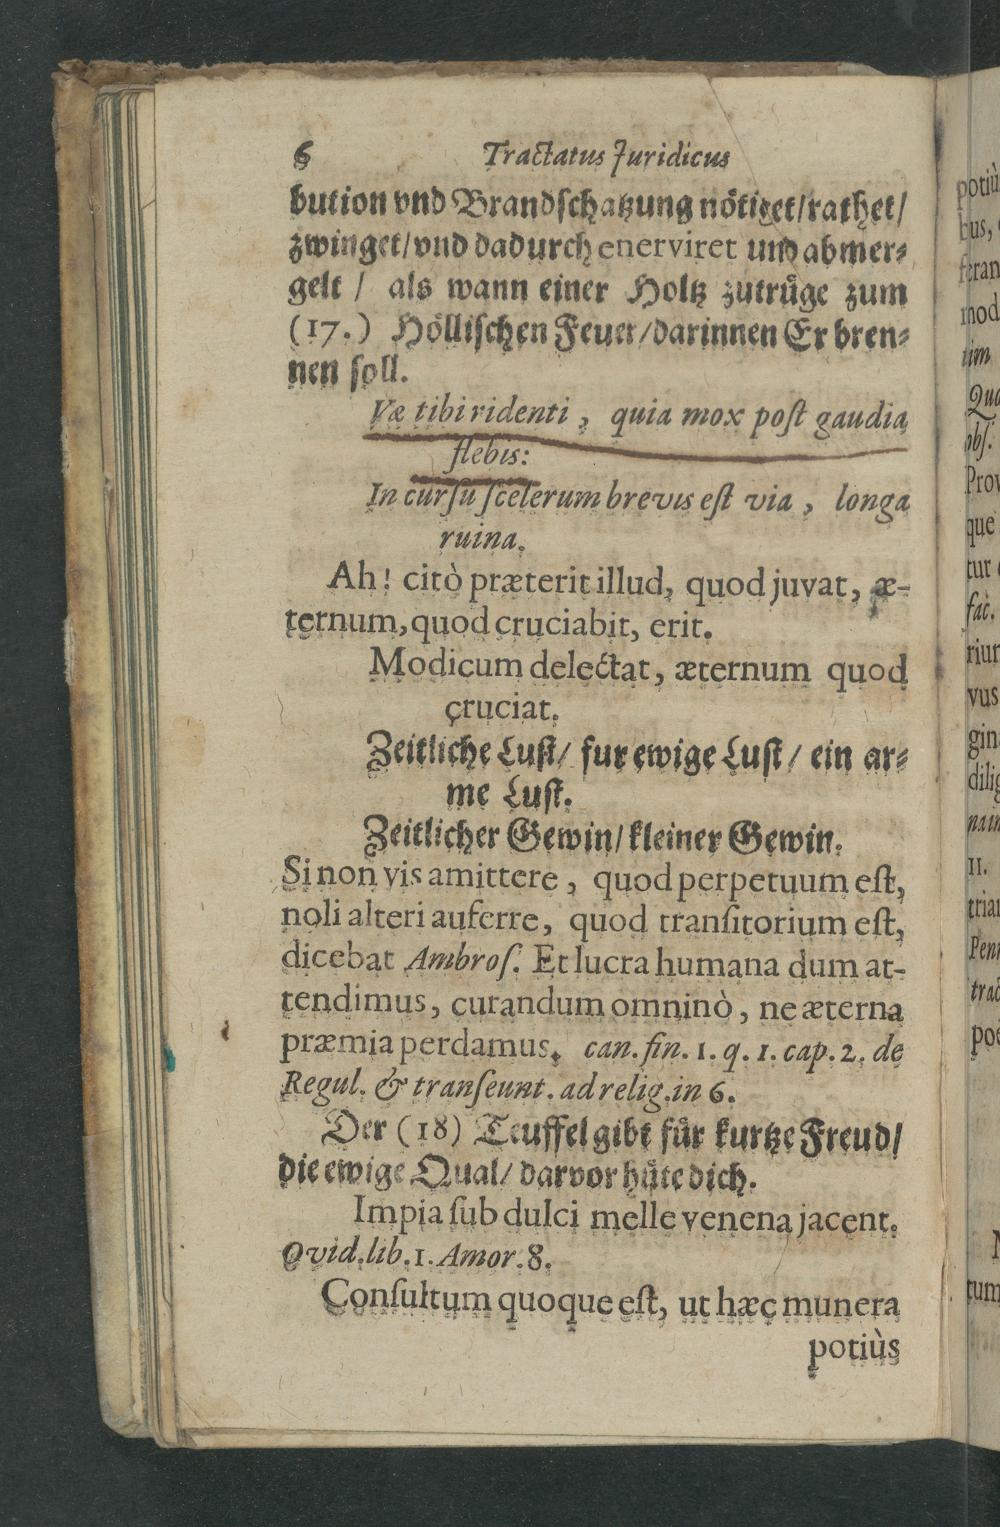 6 Tractatus Juridicus
bution vnd Brandſchatzung nötiget/rathet/
zwinget/vnd dadurch enerviret und abmer⸗
gelt / als wann einer Holtz zutrüge zum
(17.) Höllischen Feuer/darinnen Er bren⸗
nen ſoll.
Væ tibi ridenti, quia mox poſt gaudia
flebis:
In curſu ſcelerum brevis eſt via, longa
ruina.
Ah! citò præterit illud, quod juvat, æ-
ternum, quod cruciabit, erit.
Modicum delectat, æternum quod
cruciat.
Zeitliche Luſt/ fur ewige Luſt/ ein ar⸗
me Luſt.
Zeitlicher Gewin/kleiner Gewin.
Si non vis amittere, quod perpetuum eſt,
noli alteri auferre, quod tranſitorium eſt,
dicebat Ambroſ. Et lucra humana dum at-
tendimus, curandum omninò, ne æterna
præmia perdamus. can. fin. 1. q. 1. cap. 2. de
Regul. & tranſeunt. ad relig. in 6.
Der (18) Teuffel gibt für kurtze Freud/
die ewige Qual/ darvor hüte dich.
Impia ſub dulci melle venena jacent.
Ovid. lib. 1. Amor. 8.
Conſultum quoque eſt, ut hæc munera
potiùs